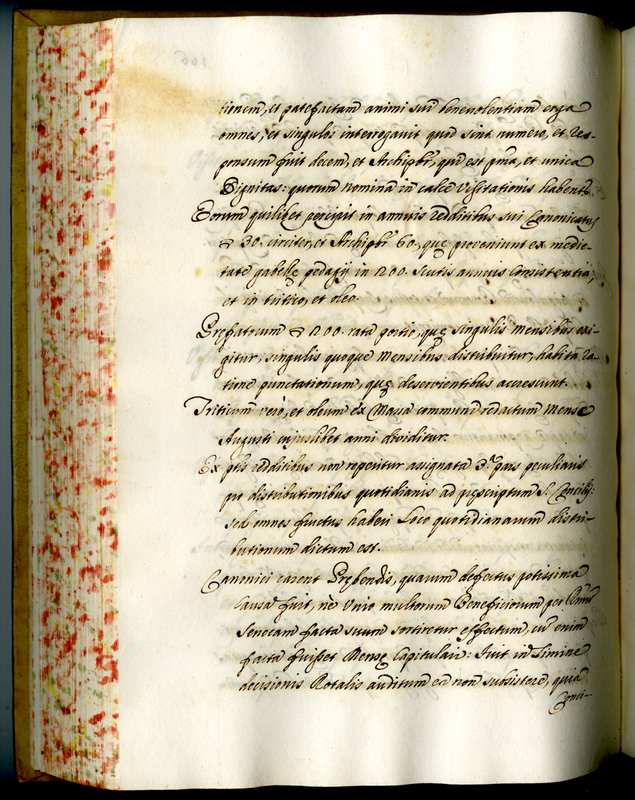 tionem, et patefactam animi sui benevolentiam erga
omnes, et singulos interrogavit quod sint numero, et res-
ponsum fuit decem, et Archipbr, que est pma, et unica
Dignitas: quorum nomina in calce Visitationis habentr.
Eorum quilibet percipit in annuis redditibus sui Canonicatus
30. circiter, et Archipbr 60, quę proveniunt ex medie-
tate gabellę pedagij in 1200. scutis annuis consistentia,
et in tritico, et oleo.
Pręfatrum 1200. rata portio, quę singulis mensibus exi-
gitur, singulis quoque mensibus distribuitur, habita ra-
tione punctationum, quę deservientibus accrescunt.
Triticum vero, et oleum ex Massa communi redactum mense
Augusti cujuslibet anni dividitur.
Ex ptis redditibus non reperitur assignata 3.a pars peculiaris
pro distributionibus quotidianis ad pręscriptum S. Concilij:
sed omnes fructus haberi loco quotidianarum distri-
butionum dictum est.
Canonici carent Prębendis, quarum defectus potissima
causa fuit, ne Unio multorum Beneficiorum per
Senecam facta suum sortiretur effectum, cu enim
facta fuisset Mensę Capitulari: fuit in Limine
decisionis Rotalis auditum ea non subsistere, quia
Conti-